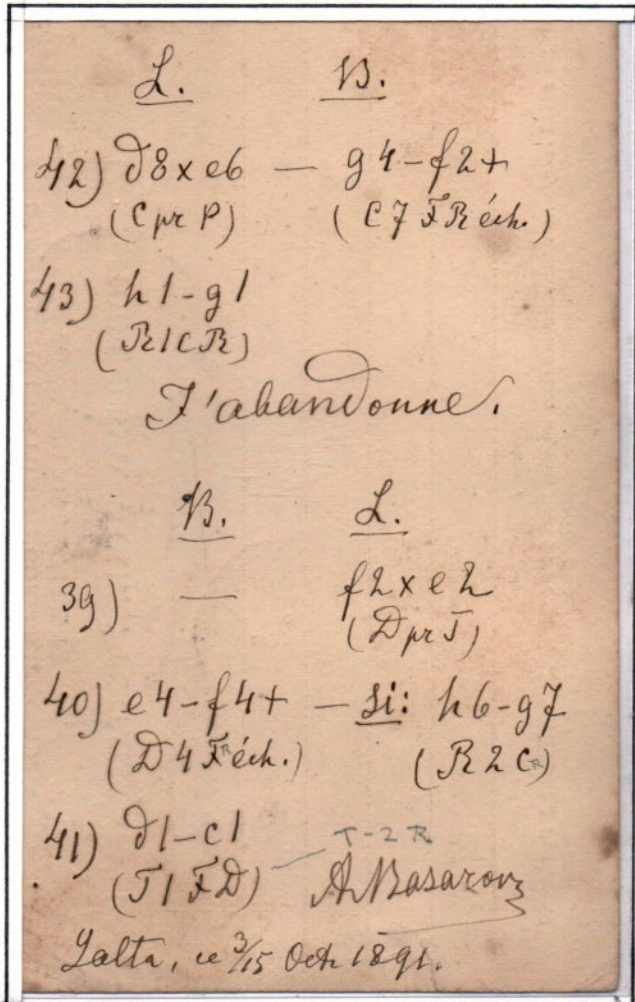 L. B.
42) d8xe6 — g4-f2+
(C pr P) (C7FR éch.)
43) h1-g1
(R1CR)
J'abandonne.
B. L.
39) — f2xe2
(D pr T)
40) e4-f4+ — si: h6-g7
(D4FR éch.) (R2CR)
41) d1-c1 T-2R
(T1FD) — A. Basarow
Yalta, ce 3/15 Oct. 1891.